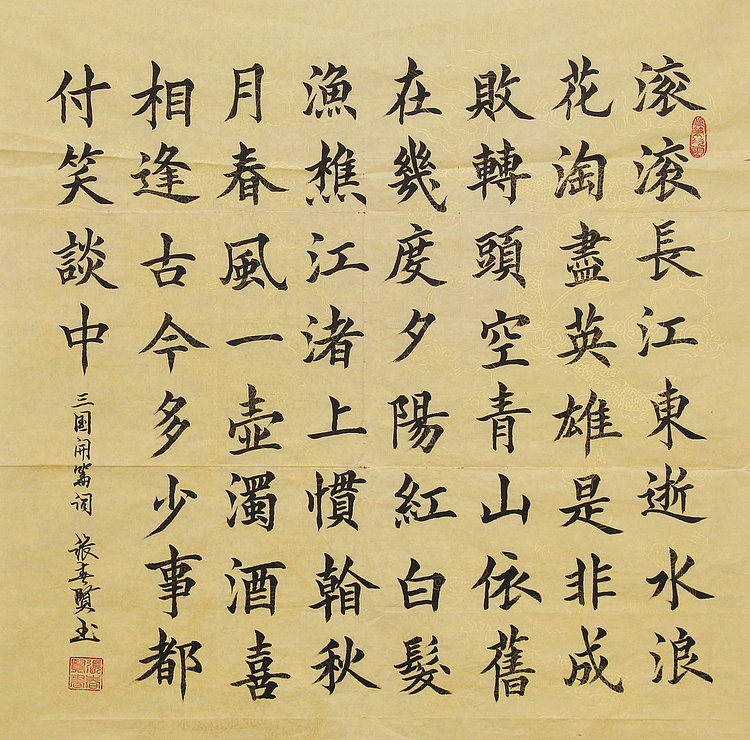 滚滚長江東逝水浪
花淘盡英雄是非成
敗轉頭空青山依舊
在幾度夕陽紅白髮
漁樵江渚上慣看秋
月春風一壺濁酒喜
相逢古今多少事都
付笑談中
三国開篇词 張春賢书